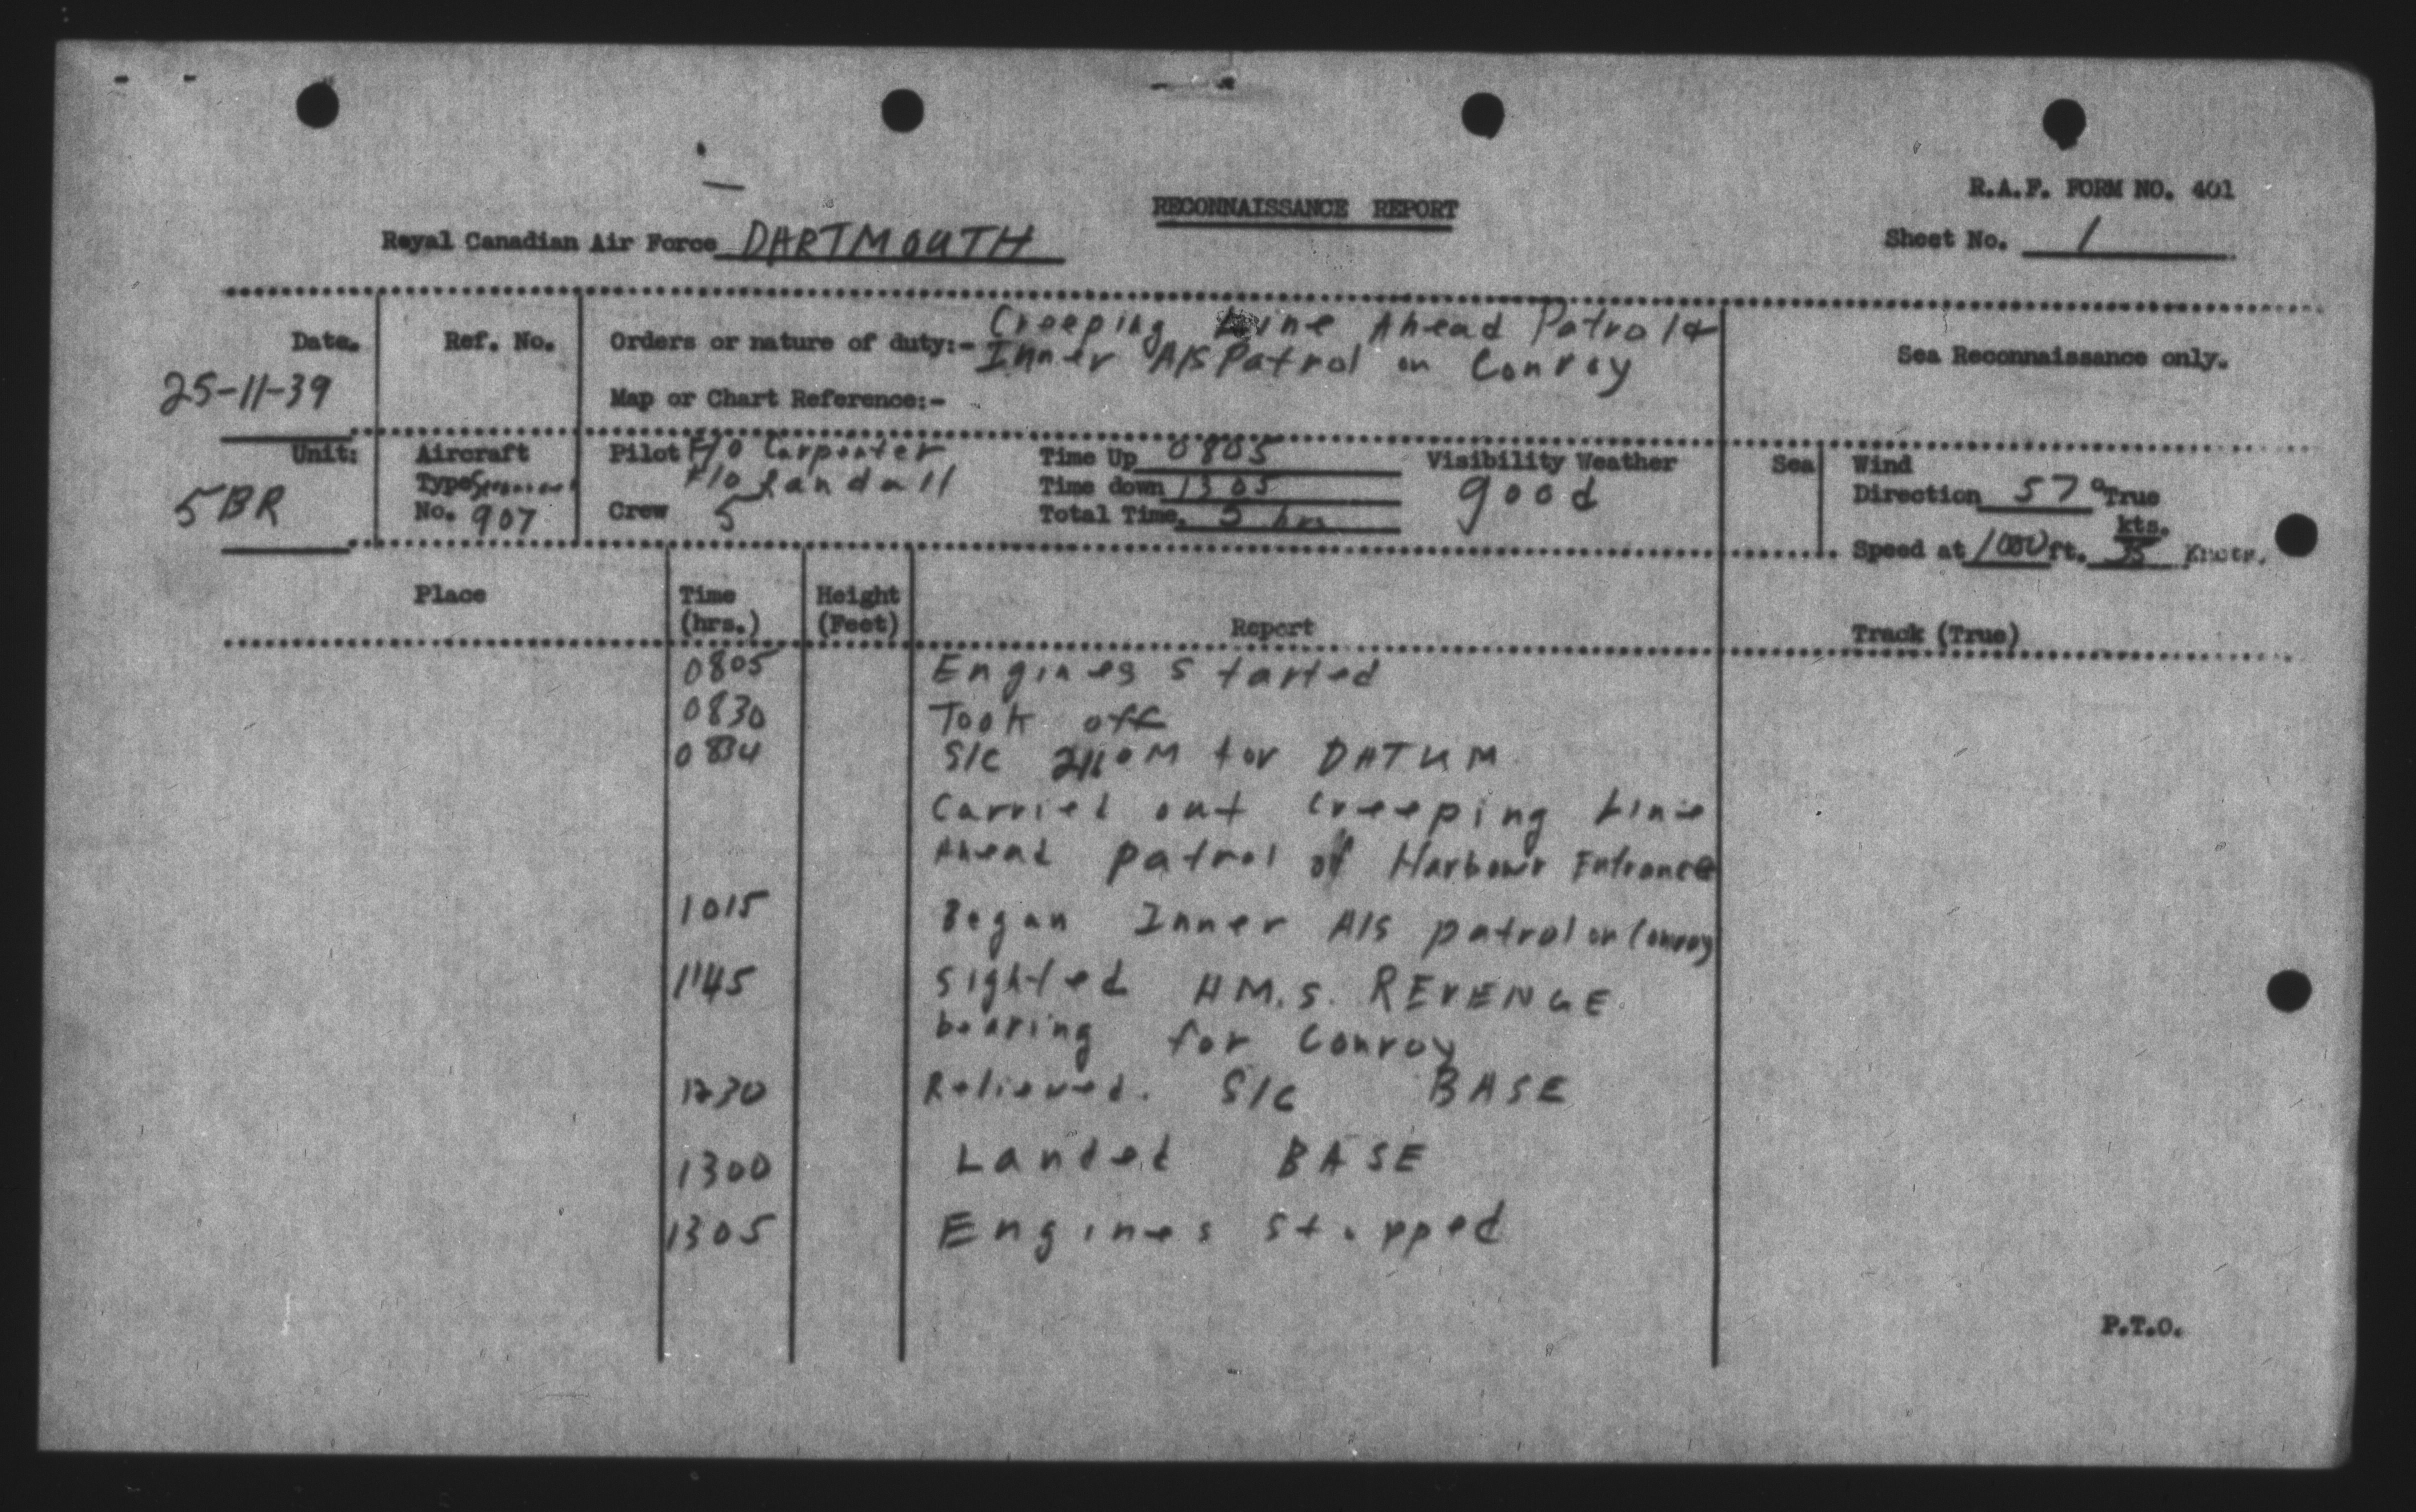 R.A.F. FORM NO. 401
RECONNAISSANCE REPORT
Royal Canadian Air Force DARTMOUTH
Sheet No. 1
Date. 25-11-39
Ref. No.
Orders or nature of duty:- Creeping Line Ahead Patrol &
Inner A/S Patrol on Convoy
Map or Chart Reference:-
Sea Reconnaissance only.
Unit: 5BR
Aircraft
Type Stranraer
No. 907
Pilot F/O Carpenter
F/O Randall
Crew 5
Time Up 0805
Time down 1305
Total Time. 5 hrs
Visibility Weather Sea
good
Wind
Direction 57° True
kts.
Speed at 1000 ft. 35 Knots.
Place
Time
(hrs.)
Height
(Feet)
Report
Track (True)
0805 Engines Started
0830 Took off
0834 S/C °M for DATUM
Carried out Creeping Line
Ahead patrol of Harbour Entrance
1015 Began Inner A/S patrol on Convoy
1145 Sighted H.M.S. REVENGE
bearing for Convoy
1230 Relieved. S/C BASE
1300 Landed BASE
1305 Engines Stopped
P.T.O.